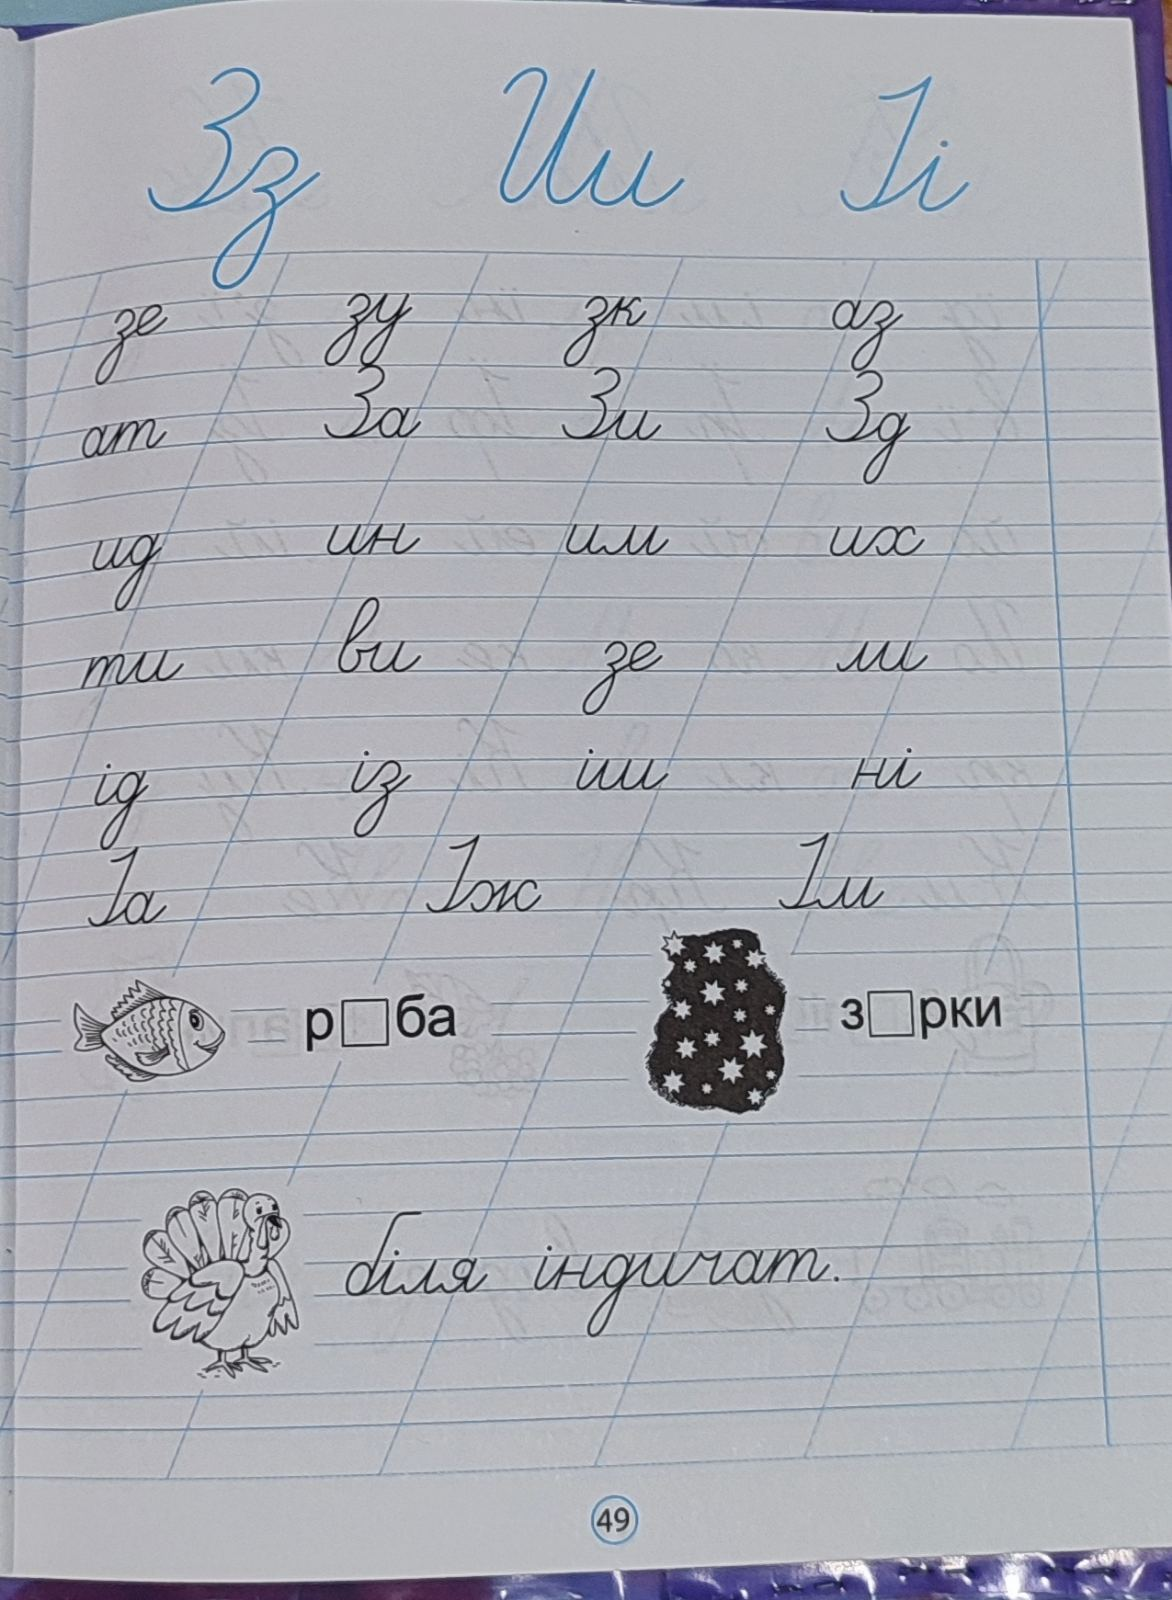 Зз Ии Іі
зе зу зк аз
ат За Зи Зд
ид ин им их
ти ви зе ли
ід із іш ні
Іа Іж Ім
р□ба з□рки
біля індичат.
49